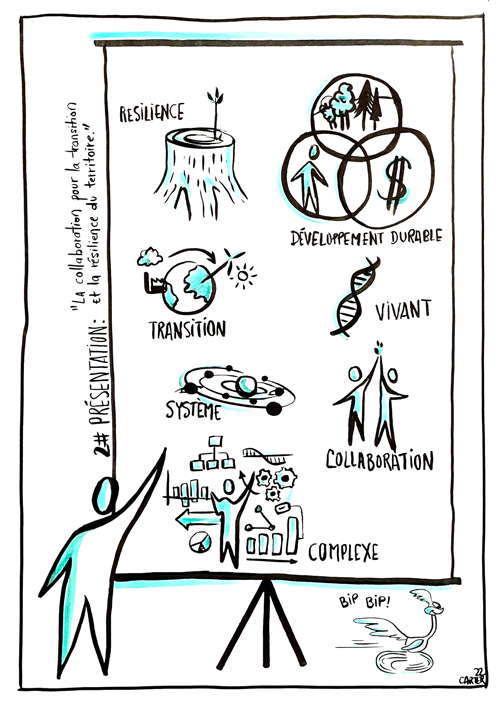 2# PRÉSENTATION:
"LA collaboration pour la transition
et la résilience du territoire."
RESILIENCE
DÉVELOPPEMENT DURABLE
TRANSITION
VIVANT
SYSTÈME
COLLABORATION
COMPLEXE
BIP BIP!
22
CARTER